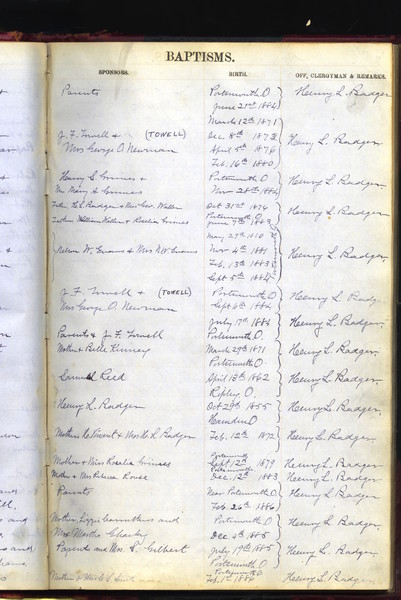 BAPTISMS.
SPONSORS. BIRTH. OFF. CLERGYMAN & REMARKS.
Parents Portsmouth O Henry L. Badger
June 21st 1884
March 12th 1871
J. F. Towell & (TOWELL) Dec 8th Henry L. Badger
Mrs George O. Newman April 5th 1876
Feb. 16th 1880
Henry S. Grimes & Portsmouth O. Henry L. Badger
Mrs Mary Grimes Nov 28th 1882
Oct 31st 1876 Henry L. Badger
Portsmouth O.
William Waller & Rosalia Grimes June 7th 1883
May 29th 1880
Nelson W. Evans & Mrs N W Evans Nov 4th 1881 Henry L. Badger
Feb. 13th 1883
Sept 5th 1884
J. F. Towell & (TOWELL) Portsmouth O. Henry L. Badge
Mrs George O. Newman Sept 6th 1884
July 17th 1884 Henry L. Badger,
Parents & J. F. Towell Portsmouth O.
Mother & Belle Kinney March 29th 1871 Henry L. Badger
Portsmouth O
Samuel Reed April 18th 1862 Henry L. Badger
Ripley, O.
Henry L. Badger Oct 29th 1855 Henry L. Badger,
Hamden O
Mother & Mrs H. L. Badger Feb. 12th 1872 Henry L. Badger,
Portsmouth
Mother & Miss Rosalia Grimes Sept 12th 1879 Henry L. Badger
Portsmouth
Mother & Mrs Rebecca Dec. 12th 1883 Henry L. Badger
Parents Near Portsmouth O. Henry L. Badger
Feb. 26th 1886
Mother, Lizzie Carruthers and Portsmouth O. Henry L. Badger,
Mrs Martha Dec 4th 1885
Parents and Mrs. S. Gilbert July 19th 1885 Henry L. Badger
Portsmouth O.
Portsmouth O
Mother & Feb. 1st 1886 Henry L. Badger